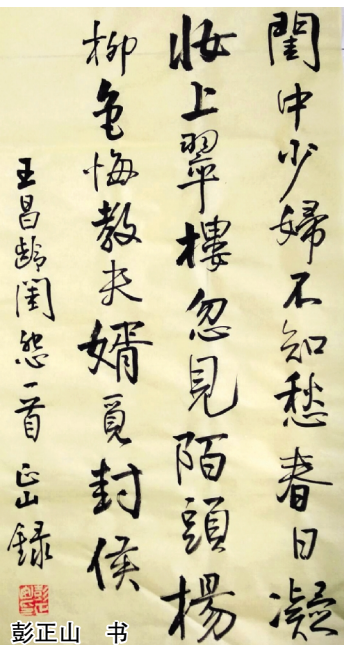 閨中少婦不知愁春日凝
妝上翠樓忽見陌頭楊
柳色悔教夫婿覓封侯
王昌齡閨怨一首 正山錄
彭正山
彭正山 书